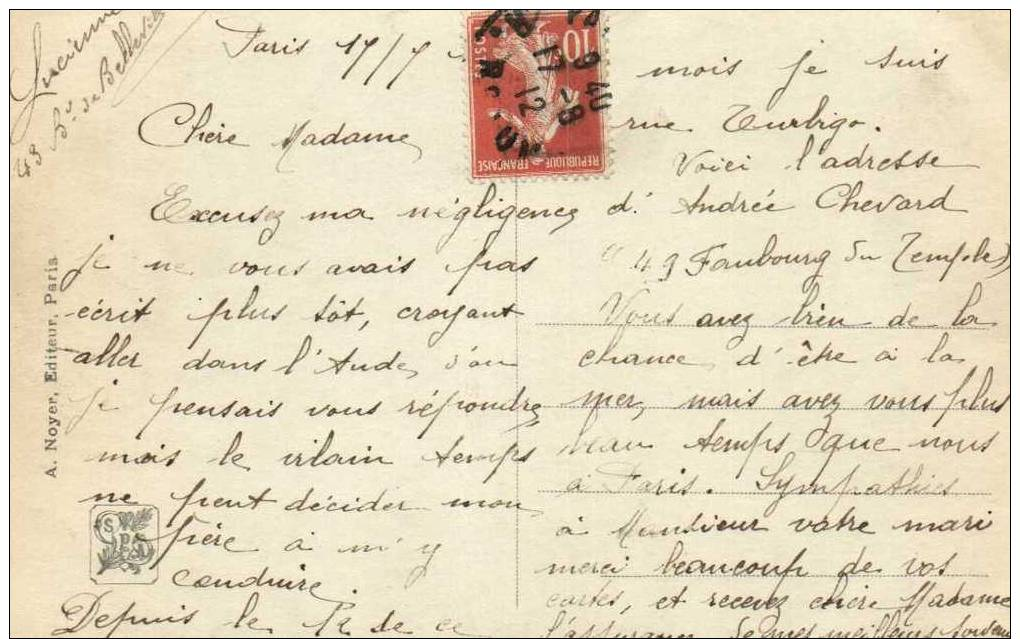 Lucienne
43 Bd de Belleville
Paris 17/7
Chère Madame
Excusez ma négligence
je ne vous avais pas
écrit plus tôt, croyant
aller dans l'Aude, d'où
je pensais vous répondre
mais le vilain temps
ne peut décider mon
Père à m'y
conduire.
Depuis le 12 de ce
mois je suis
rue Turbigo.
Voici l'adresse
d'Andrée Chevard
"49 Faubourg du Temple"
Vous avez bien de la
chance d'être à la
mer, mais avez vous plus
beau temps que nous
à Paris. Sympathies
à Monsieur votre mari
merci beaucoup de vos
cartes, et recevez chère Madame
l'assurance de mes meilleurs
10
POSTES
REPUBLIQUE FRANÇAISE
9 40
17 -8
12
A. Noyer, Editeur, Paris.